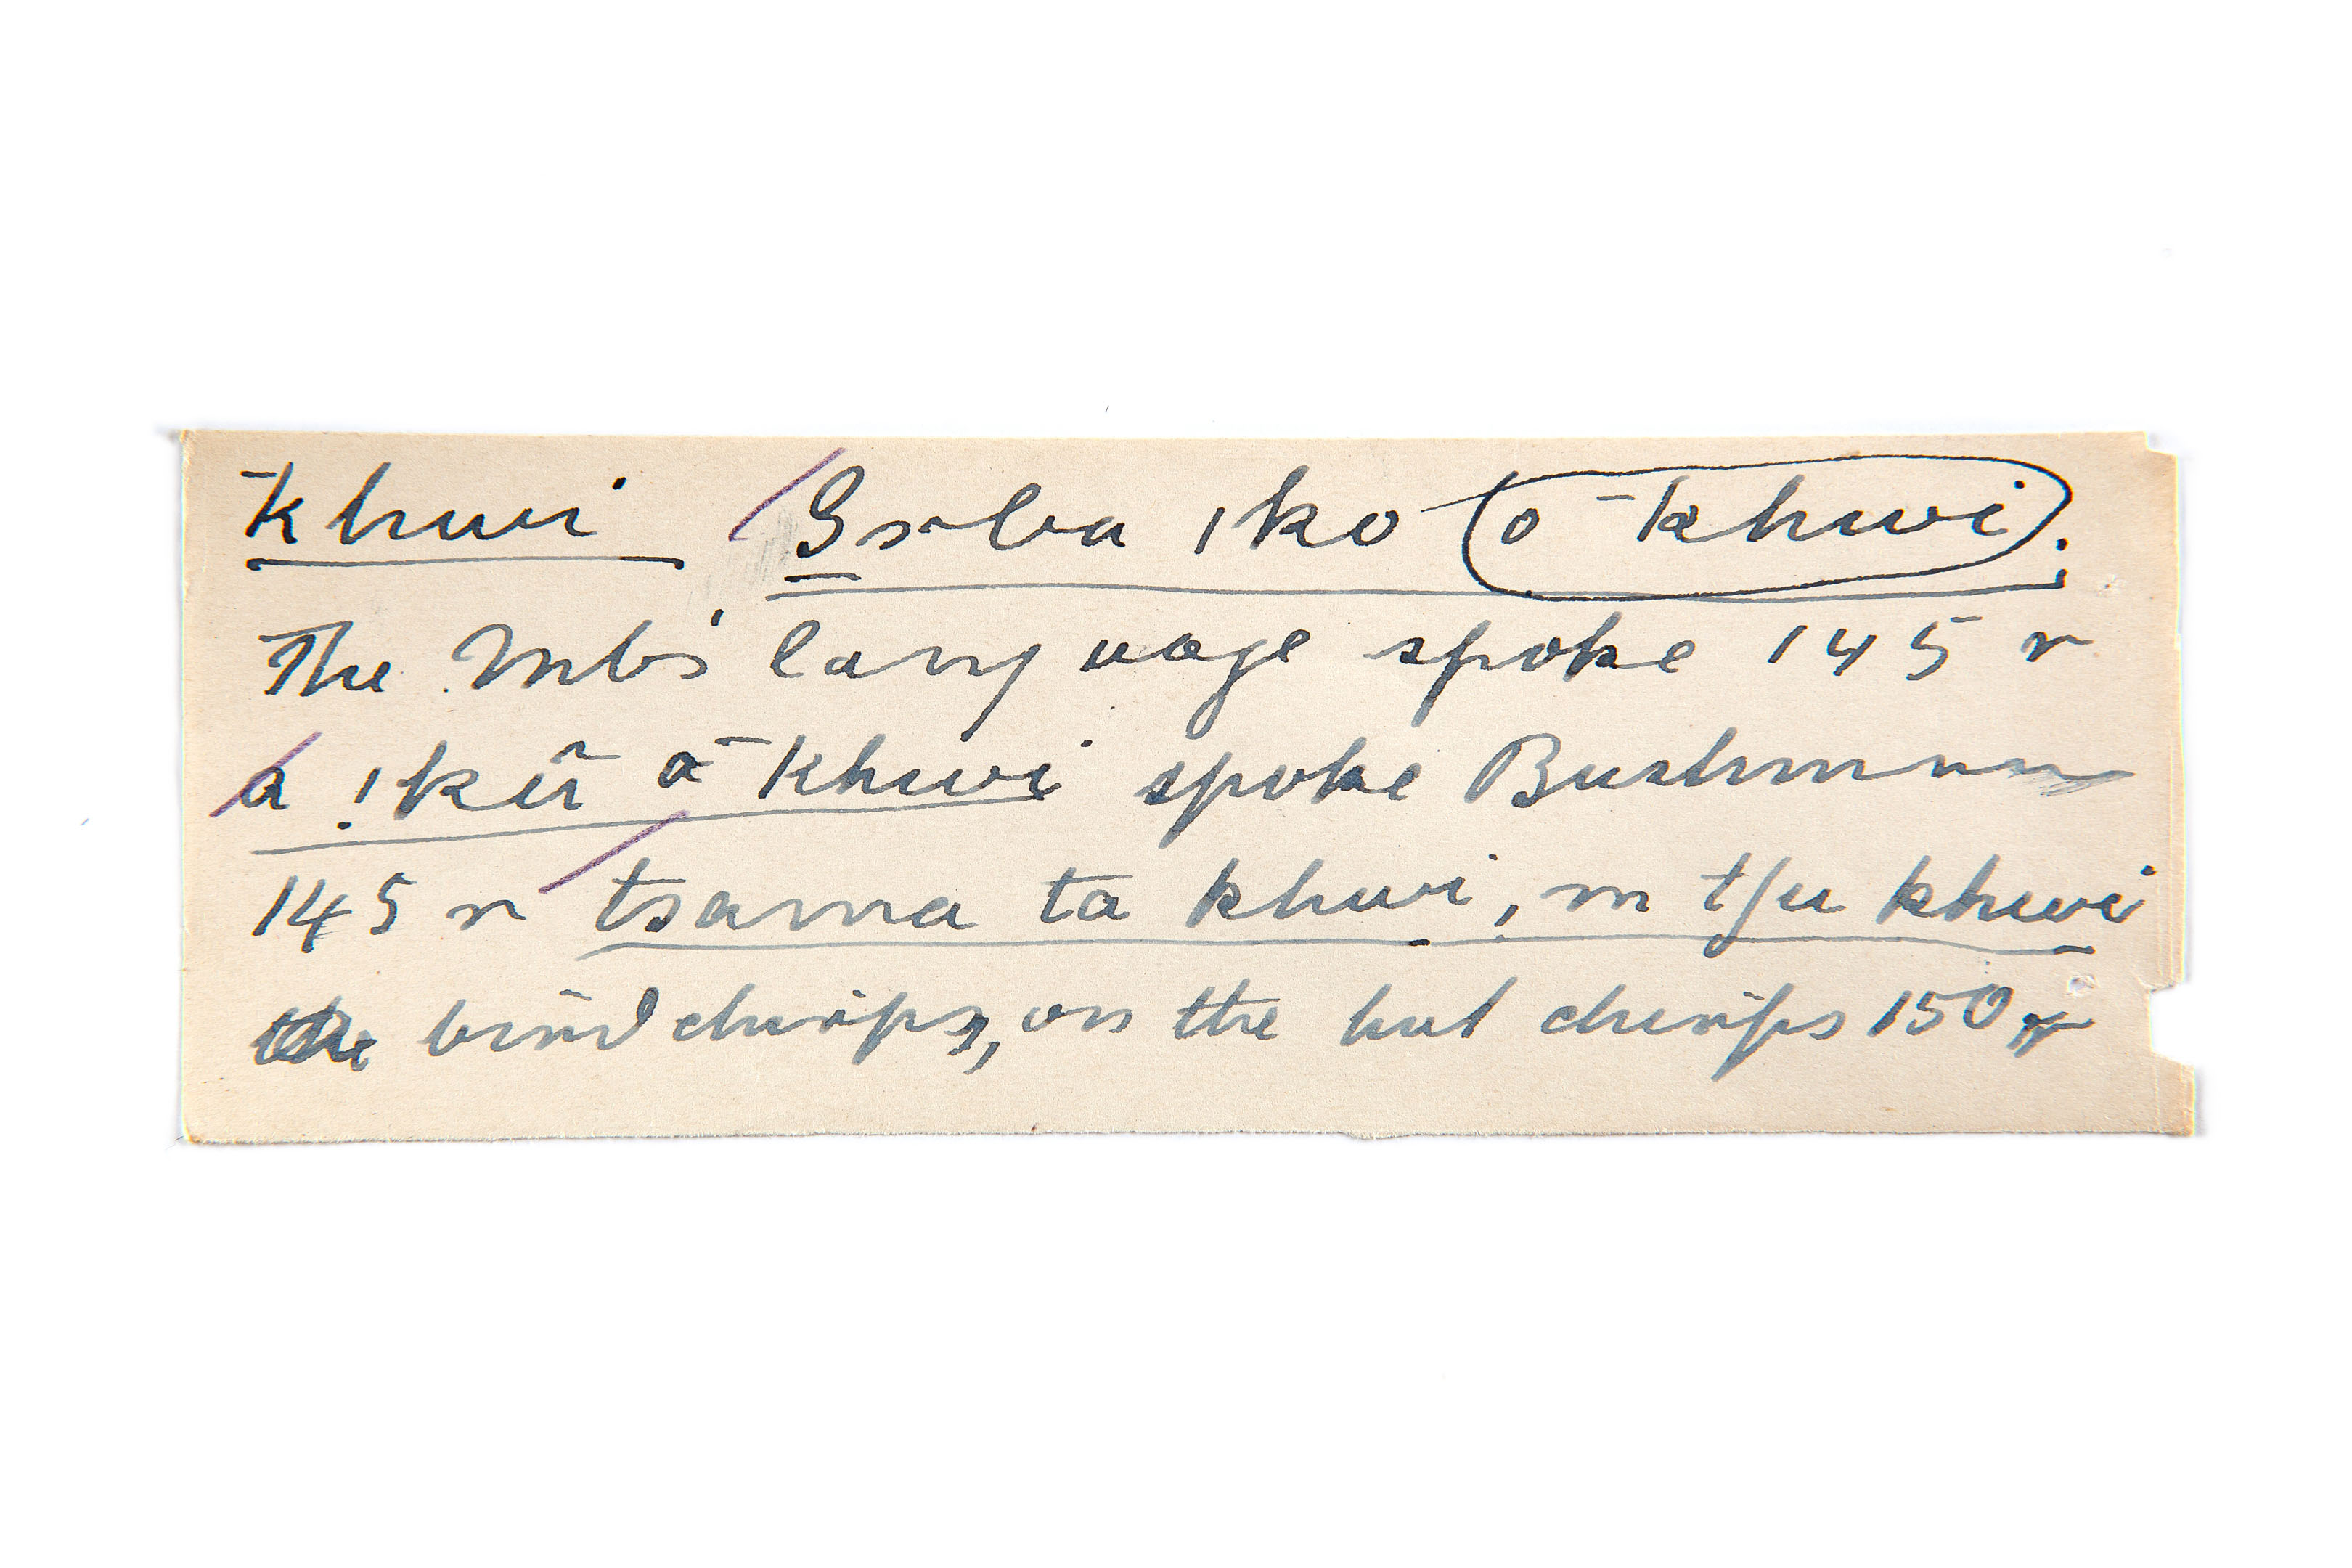 k̄hwi Sɜrba ǀko ō k̄hwi.
The Mb's language spoke 145 r
a ǃkű ā k̄hwi spoke Bushman
145 r tsama ta khwi, m tʃu khwi
the bird chirps, on the hut chirps 150 r